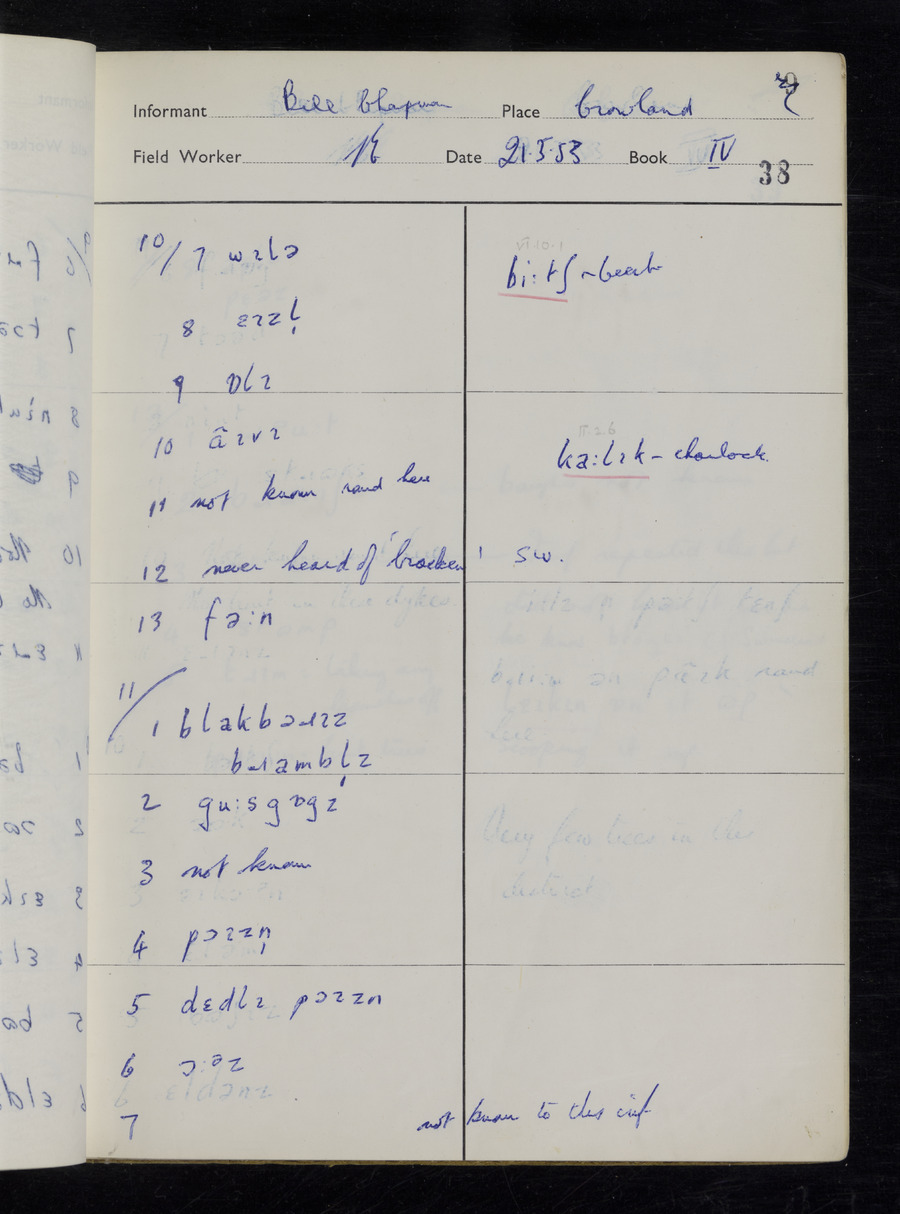 Informant Bill Chapman Place Crowland
Field Worker Date 21.5.53 Book IV
38
10/7 wɪlə
8 ɛɪzl̩
9 ɒlɪ
10 ãɪvɪ
11 not known round here
12 never heard of 'bracken' SW.
13 fəːn
11/
1 blakbəɹɪz
bɹambl̩z
2 guːsgɒgz
3 not known
4 pɔɪzn̩
5 dɛdlɪ pɔɪzn
6 ɔːəz
7 not known to this inf
VI.10.1
biːtʃ – beech
II.2.6
kaːlɪk – charlock.
Very few trees in this
district